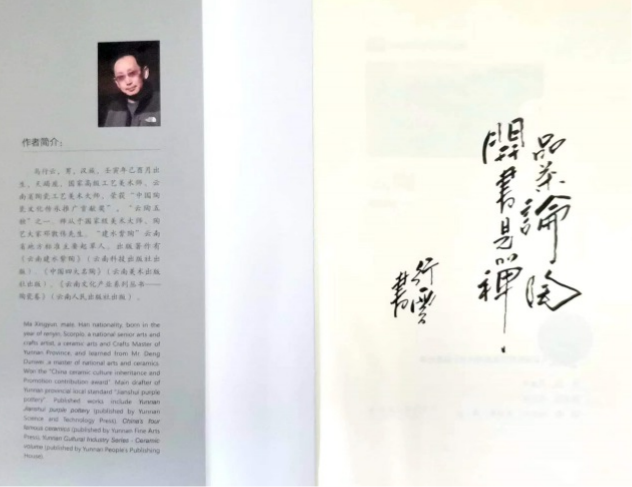 作者简介：
马行云，男，汉族，壬寅年己酉月出
生，天蝎座，国家高级工艺美术师，云
南省陶瓷工艺美术大师，荣获“中国陶
瓷文化传承推广贡献奖”，“云陶五
”之一，师从于国家级美术大师、陶
艺大家邓敦伟先生。“建水紫陶”云南
省地方标准主要起草人，出版著作有
《云南建水紫陶》（云南科技出版社出
版）、《中国四大名陶》（云南美术出版
社出版）、《云南文化产业系列丛书——
陶瓷卷》（云南人民出版社出版）。
Ma Xingyun, male, Han nationality, born in the
year of renyin, Scorpio, a national senior arts and
crafts artist, a ceramic arts and Crafts Master of
Yunnan Province, and learned from Mr. Deng
Dunwei, a master of national arts and ceramics.
Won the "China ceramic culture inheritance and
Promotion contribution award". Main drafter of
Yunnan provincial local standard "Jianshui purple
pottery". Published works include Yunnan
Jianshui purple pottery (published by Yunnan
Science and Technology Press), China's four
famous ceramics (published by Yunnan Fine Arts
Press), Yunnan Cultural Industry Series - Ceramic
volume (published by Yunnan People's Publishing
House).
品茶論陶
開書見禪
行雲
書